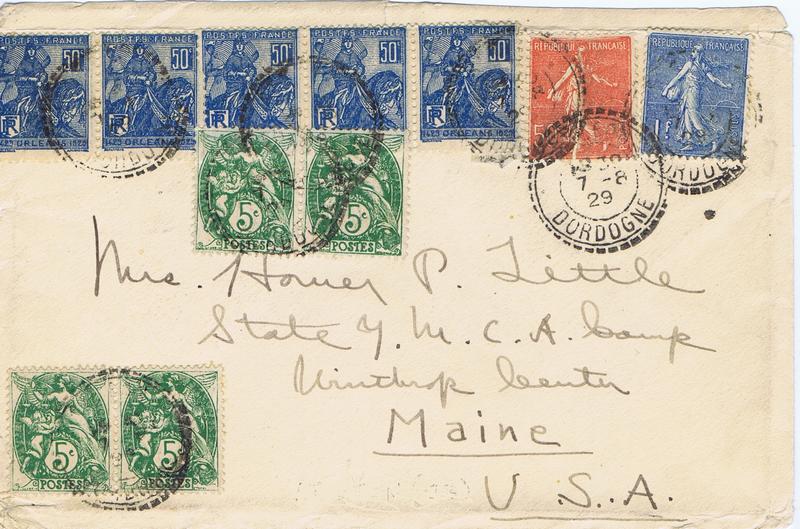 POSTES FRANCE POSTES FRANCE POSTES FRANCE POSTES FRANCE POSTES FRANCE
50c 50c 50c 50c 50c
RF RF RF RF RF
1429 ORLEANS 1929 1429 ORLEANS 1929 1429 ORLEANS 1929 1429 ORLEANS 1929 1429 ORLEANS 1929
RÉPUBLIQUE FRANÇAISE RÉPUBLIQUE FRANÇAISE
50 1F
7-8
29
DORDOGNE
DORDOGNE
5c 5c
POSTES POSTES
Mrs. Homer P. Little
State Y. M. C. A. Camp
Winthrop Center
Maine
U. S. A.
5c 5c
POSTES POSTES